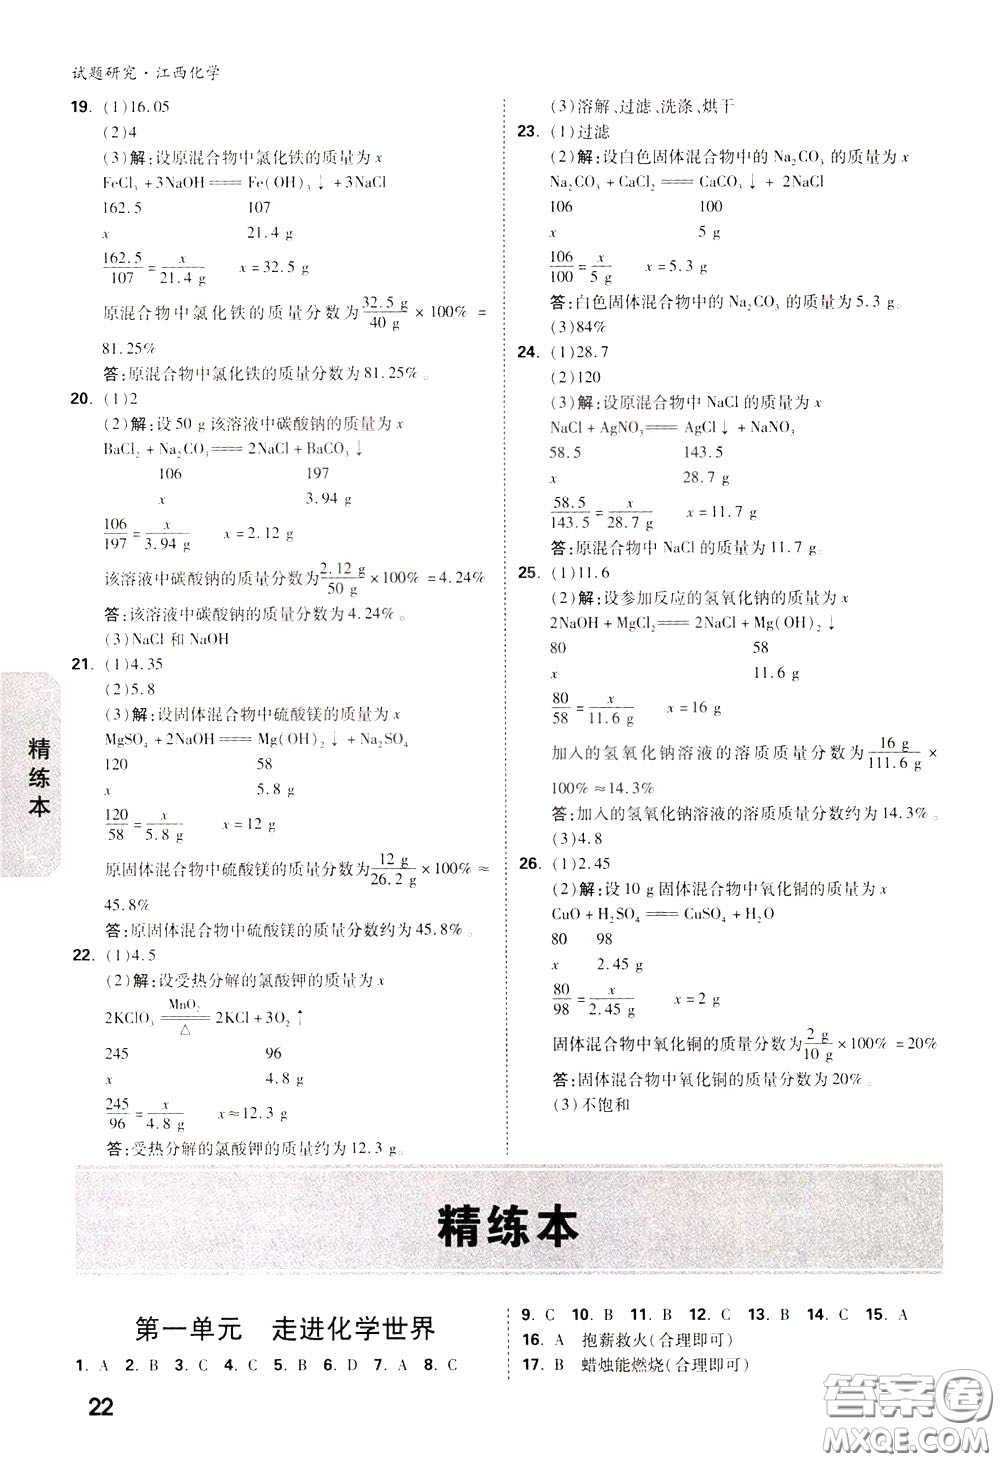 试题研究·江西化学
19. (1)16.05
(2)4
(3)解:设原混合物中氯化铁的质量为x
FeCl₃ +3NaOH═══ Fe(OH)₃↓ +3NaCl
162.5 107
x 21.4 g
162.5/107 = x/21.4 g x=32.5 g
原混合物中氯化铁的质量分数为32.5 g/40 g ×100% =
81.25%
答:原混合物中氯化铁的质量分数为81.25%。
20. (1)2
(2)解:设50 g该溶液中碳酸钠的质量为x
BaCl₂ +Na₂CO₃═══ 2NaCl+BaCO₃↓
106 197
x 3.94 g
106/197 = x/3.94 g x=2.12 g
该溶液中碳酸钠的质量分数为2.12 g/50 g ×100% =4.24%
答:该溶液中碳酸钠的质量分数为4.24%。
(3)NaCl和NaOH
21. (1)4.35
(2)5.8
(3)解:设固体混合物中硫酸镁的质量为x
MgSO₄ +2NaOH═══ Mg(OH)₂↓+Na₂SO₄
120 58
x 5.8 g
120/58 = x/5.8 g x=12 g
原固体混合物中硫酸镁的质量分数为12 g/26.2 g ×100% ≈
45.8%
答:原固体混合物中硫酸镁的质量分数约为45.8%。
22. (1)4.5
(2)解:设受热分解的氯酸钾的质量为x
2KClO₃ ═══(MnO₂/△) 2KCl+3O₂↑
245 96
x 4.8 g
245/96 = x/4.8 g x≈12.3 g
答:受热分解的氯酸钾的质量约为12.3 g。
(3)溶解、过滤、洗涤、烘干
23. (1)过滤
(2)解:设白色固体混合物中的Na₂CO₃的质量为x
Na₂CO₃ +CaCl₂ ═══ CaCO₃↓+ 2NaCl
106 100
x 5 g
106/100 = x/5 g x=5.3 g
答:白色固体混合物中的Na₂CO₃的质量为5.3 g。
(3)84%
24. (1)28.7
(2)120
(3)解:设原混合物中NaCl的质量为x
NaCl+AgNO₃═══ AgCl↓+NaNO₃
58.5 143.5
x 28.7 g
58.5/143.5 = x/28.7 g x=11.7 g
答:原混合物中NaCl的质量为11.7 g。
25. (1)11.6
(2)解:设参加反应的氢氧化钠的质量为x
2NaOH+MgCl₂═══2NaCl+Mg(OH)₂↓
80 58
x 11.6 g
80/58 = x/11.6 g x=16 g
加入的氢氧化钠溶液的溶质质量分数为16 g/111.6 g ×
100% ≈14.3%
答:加入的氢氧化钠溶液的溶质质量分数约为14.3%。
(3)4.8
26. (1)2.45
(2)解:设10 g固体混合物中氧化铜的质量为x
CuO+H₂SO₄═══CuSO₄+H₂O
80 98
x 2.45 g
80/98 = x/2.45 g x=2 g
固体混合物中氧化铜的质量分数为2 g/10 g ×100% =20%
答:固体混合物中氧化铜的质量分数为20%。
(3)不饱和
精练本
精练本
第一单元 走进化学世界
1. A 2. B 3. C 4. C 5. B 6. D 7. A 8. C
9. C 10. B 11. B 12. C 13. B 14. C 15. A
16. A 抱薪救火(合理即可)
17. B 蜡烛能燃烧(合理即可)
22
答案卷
MXQE.COM